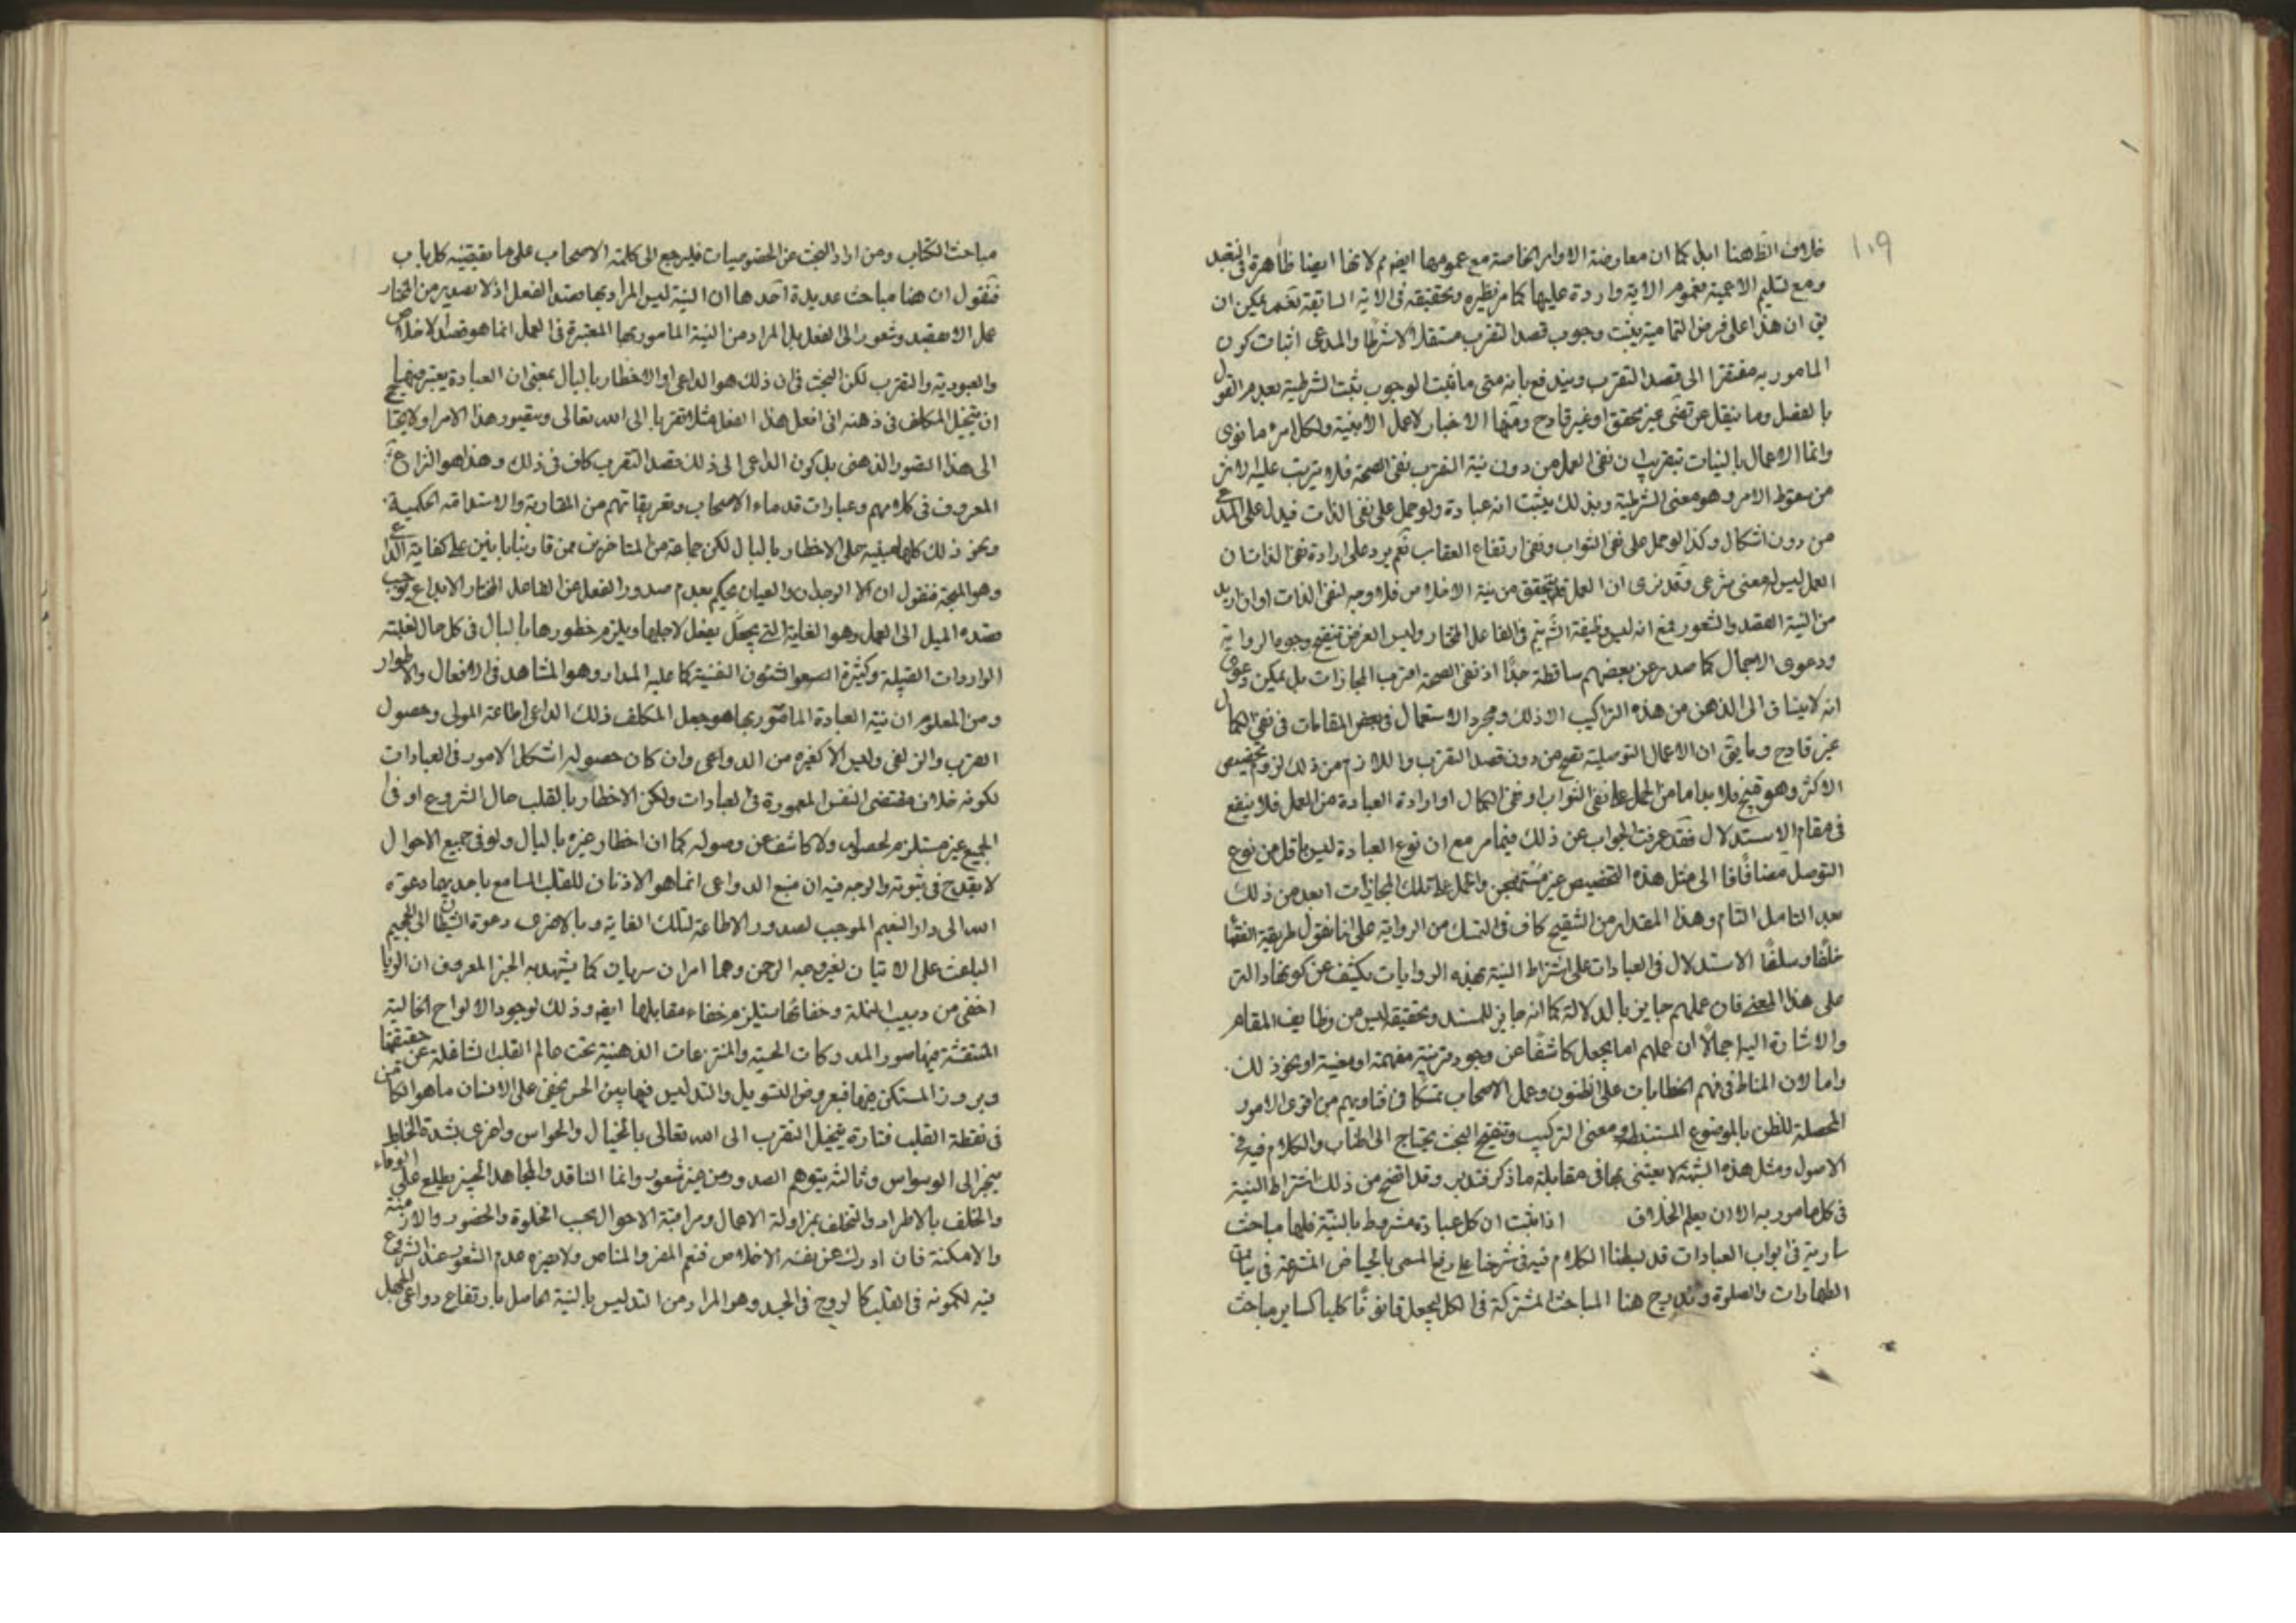 ١٠٩
خلاف الظ هنا ابدا كما ان معارضة الاوامر الخاصة مع عمومها ايضا مم لانها ايضا ظاهرة في التعبد
ومع تسليم الاعمية فعموم الاية واردة عليها كما مر نظيره وتحقيقه في الاية السابقة نعم يمكن ان
يق ان هذا على فرض التمامية يثبت وجوب قصد التقرب مستقلا لا شرطا والمدعى اثبات كون
المامور به مفتقرا الى قصد التقرب ويندفع بانه متى ما ثبت الوجوب ثبت الشرطية بعدم القول
بالفصل وما ينقل عن بعض غير محقق او غير قادح ومنها الاخبار لا عمل الا بنية ولكل امرء ما نوى
وانما الاعمال بالنيات بتقريب ان نفى العمل من دون نية التقرب نفى الصحة فلا يترتب عليه الاثر
من سقوط الامر وهو معنى الشرطية وبذلك يثبت انه عبادة ولو حمل على نفى الذات فيدل على المدعى
من دون اشكال وكذا لو حمل على نفى الثواب ونفى ارتفاع العقاب نعم يرد على ارادة نفى الذات ان
العمل ليس له معنى شرعى وقد نرى ان العمل قد يتحقق من نية الاخلاص فلا وجه لنفى الذات او ان اريد
من النية القصد والشعور فمع انه ليس وظيفة الش يتم في الفاعل المختار وليس الغرض تنقيح وجوه الرواية
ودعوى الاجمال كما صدر عن بعضهم ساقطة جدًا اذ نفى الصحة اقرب المجازات بل يمكن دعوى
انه لا ينساق الى الذهن من هذه التراكيب الا ذلك ومجرد الاستعمال في بعض المقامات في نفى الكمال
غير قادح وما يق ان الاعمال التوصلية تصح من دون قصد التقرب واللازم من ذلك لزوم تخصيص
الاكثر وهو قبيح فلا بد اما من الحمل على نفى الثواب او نفى الكمال او ارادة العبادة من العمل فلا ينفع
في مقام الاستدلال فقد عرفت الجواب عن ذلك فيما مر مع ان نوع العبادة ليس باقل من نوع
التوصل مضافًا الى مثل هذه التخصيص غير مستهجن والحمل على تلك المجازات ابعد من ذلك
بعد التامل التام وهذا المقدار من التنقيح كاف في التمسك من الرواية على انا نقول طريقة الفقهاء
خلفًا وسلفًا الاستدلال في العبادات على اشتراط النية بهذه الروايات يكشف عن كونها دالة
على هذا المعنى فان عملهم جابر بالدلالة كما انه جابر للسند وتحقيقه ليس من وظايف المقام
والاشارة اليه اجمالًا ان عملهم اما يجعل كاشفًا عن وجود قرينة مفهمة او معينة او نحو ذلك
واما لان المناط في فهم الخطابات على الظنون وعمل الاصحاب تمسكا في فتاويهم من اقوى الامور
المحصلة للظن بالموضوع المستنبط ومعنى التركيب وتنقيح البحث يحتاج الى اطناب والكلام فيه في
الاصول ومثل هذه الشبهة لا يعتنى بها في مقابلة ما ذكر فتدبر وقد اتضح من ذلك اشتراط النية
في كل مامور به الا ان يعلم الخلاف اذا ثبت ان كل عبادة مشروط بالنية فلها مباحث
سارية في ابواب العبادات قد بسطنا الكلام فيه في شرحنا على رفع المسمى بالحياض المترعة في نيات
الطهارات والصلوة وندرج هنا المباحث المشتركة في الكل بجعل قانونًا كليا كساير مباحث
مباحث الكتاب ومن اراد البحث عن الخصوصيات فليرجع الى كلمة الاصحاب على ما يقتضيه كل باب
فنقول ان هنا مباحث عديدة احدها ان النية ليس المراد بها قصد الفعل اذ لا يصدر من المختار
عمل الا بقصد وشعور الى الفعل بل المراد من النية المامور بها المعتبرة في العمل انما هو قصد الاخلاص
والعبودية والتقرب لكن البحث في ان ذلك هو الداعى او الاخطار بالبال بمعنى ان العبادة يعتبر فيها
ان يتخيل المكلف في ذهنه انى افعل هذا الفعل مثلا تقربا الى الله تعالى ويتصور هذا الامر او لا يحتاج
الى هذا التصور الذهنى بل كون الداعى الى ذلك قصد التقرب كاف في ذلك وهذا هو النزاع
المعروف في كلامهم وعبارات قدماء الاصحاب وتفريقاتهم من المقارنة والاستدامة الحكمية
ونحو ذلك كلها مبنية على الاخطار بالبال لكن جماعة من المتاخرين ممن قاربنا بانين على كفاية الداعى
وهو المتجه فنقول ان الوجدان والعيان يحكم بعدم صدور الفعل من الفاعل المختار الا بداع يوجب
قصده الميل الى العمل وهو الغاية التى يجعل بفعل لاجلها ويلزم خطورها بالبال في كل حال لغلبته
الواردات القبيلة وكثرة الشئون النفسية كما عليه المدار وهو المشاهد في الافعال والاطوار
ومن المعلوم ان نية العبادة المامور بها هو جعل المكلف ذلك الداعى اطاعة المولى وحصول
القرب والزلفى وليس الا كغيره من الدواعى وان كان حصوله اشكل الامور في العبادات
لكونه خلاف مقتضى النفس المعمورة في العبادات ولكن الاخطار بالقلب حال الشروع او في
الجميع غير مستلزم لحصوله ولا كاشف عن وصوله كما ان اخطار غيره بالبال ولو في جميع الاحوال
لا يقدح في ثبوته والوجه فيه ان منبع الدواعى انما هو الاذنان للقلب السامع باحديهما دعوة
الله الى دار النعيم الموجب لصدور الاطاعة لتلك الغاية وبالاخرى دعوة الشيطان الى الجحيم
الباعث على الاتيان لغير وجه الرحمن وهما امران سريان كما يشهد به الخبر المعروف ان الريا
اخفى من دبيب النملة وخفائها يستلزم خفاء مقابلها ايضا وذلك لوجود الالواح الخالية
المنتقشة فيها صور المدركات الحسية والمنتزعات الذهنية تحت عالم القلب الشاغلة عن حقيقتها
وبروز المستكن فيها فبعروض التسويل والتدليس فيما بين الحس يخفى على الانسان ما هو الكامن
في نقطة القلب فتارة يتخيل التقرب الى الله تعالى بالخيال والحواس واخرى بشدة الخاطر
ينجر الى الوسواس وثالثة يتوهم الصدور من غير شعور وانما الناقد والمجاهد الخبير يطلع على الوفاء
والخلف بالاطراد والتخلف بمزاولة الاعمال ومراقبة الاحوال بحسب الخلوة والحضور والازمنة
والامكنة فان ادرك عن نفسه الاخلاص فنعم المفر والمناص ولا يضره عدم الشعور عند الشروع
فيه لكمونه في القلب كالروح في الجسد وهو المراد من التدليس بالنية الحاصل بارتفاع دواعى الجهل